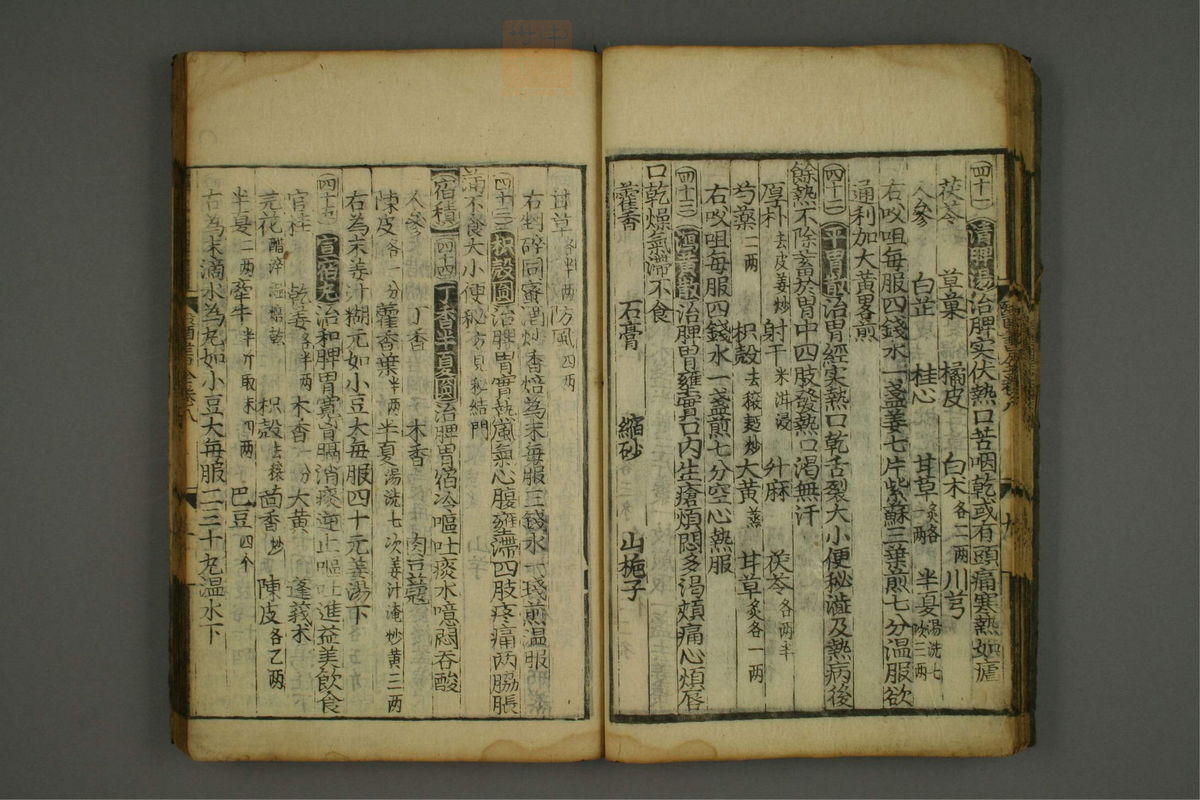 四十一 清脾湯治脾実伏熱口苦咽乾或有頭痛寒熱如瘧
茯苓 草菓 橘皮 白术各二兩 川芎
人參 白芷 桂心 甘草炙各一兩 半夏湯洗七次三兩
右㕮咀每服四錢水一盞姜七片紫蘇三葉煎七分温服欲
通利加大黃畧煎
四十二 平胃散治胃經実熱口乾舌裂大小便秘澁及熱病後
餘熱不除蓄於胃中四肢發熱口渴無汗
厚朴去皮姜炒 射干米泔浸 升麻 茯苓各兩半
芍藥二兩 枳殻去穰麩炒 大黃蒸 甘草炙各一兩
右㕮咀每服四錢水一盞煎七分空心熱服
四十三 瀉黃散治脾胃壅實口内生瘡煩悶多渴頰痛心煩唇
口乾燥氣滯不食
藿香 石膏 縮砂 山梔子
甘草各半兩 防風四兩
右剉碎同蜜酒炒香焙為末每服三錢水一琖煎温服
四十三 枳殻圓治脾胃實熱氣心腹壅滯四肢疼痛兩脇脹
滿不食大小便秘方見秘結門
宿積 四十四 丁香半夏圓治脾胃宿冷嘔吐痰水噫悶吞酸
人參 丁香 木香 肉豆蔻
陳皮各一分 藿香葉半兩 半夏湯洗七次姜汁淹炒黃三兩
右為末姜汁糊元如小豆大每服四十元姜湯下
宣宿丸治和脾胃寬胷膈消痰逆止嘔吐進益美飲食
官桂 乾姜各半兩 木香一分 大黃 蓬莪术
芫花醋淬濕乾 枳殻去穰 茴香炒 陳皮各乙兩
半夏二兩 牽牛半斤取末四兩 巴豆四个
右為末滴水為丸如小豆大每服二三十丸温水下